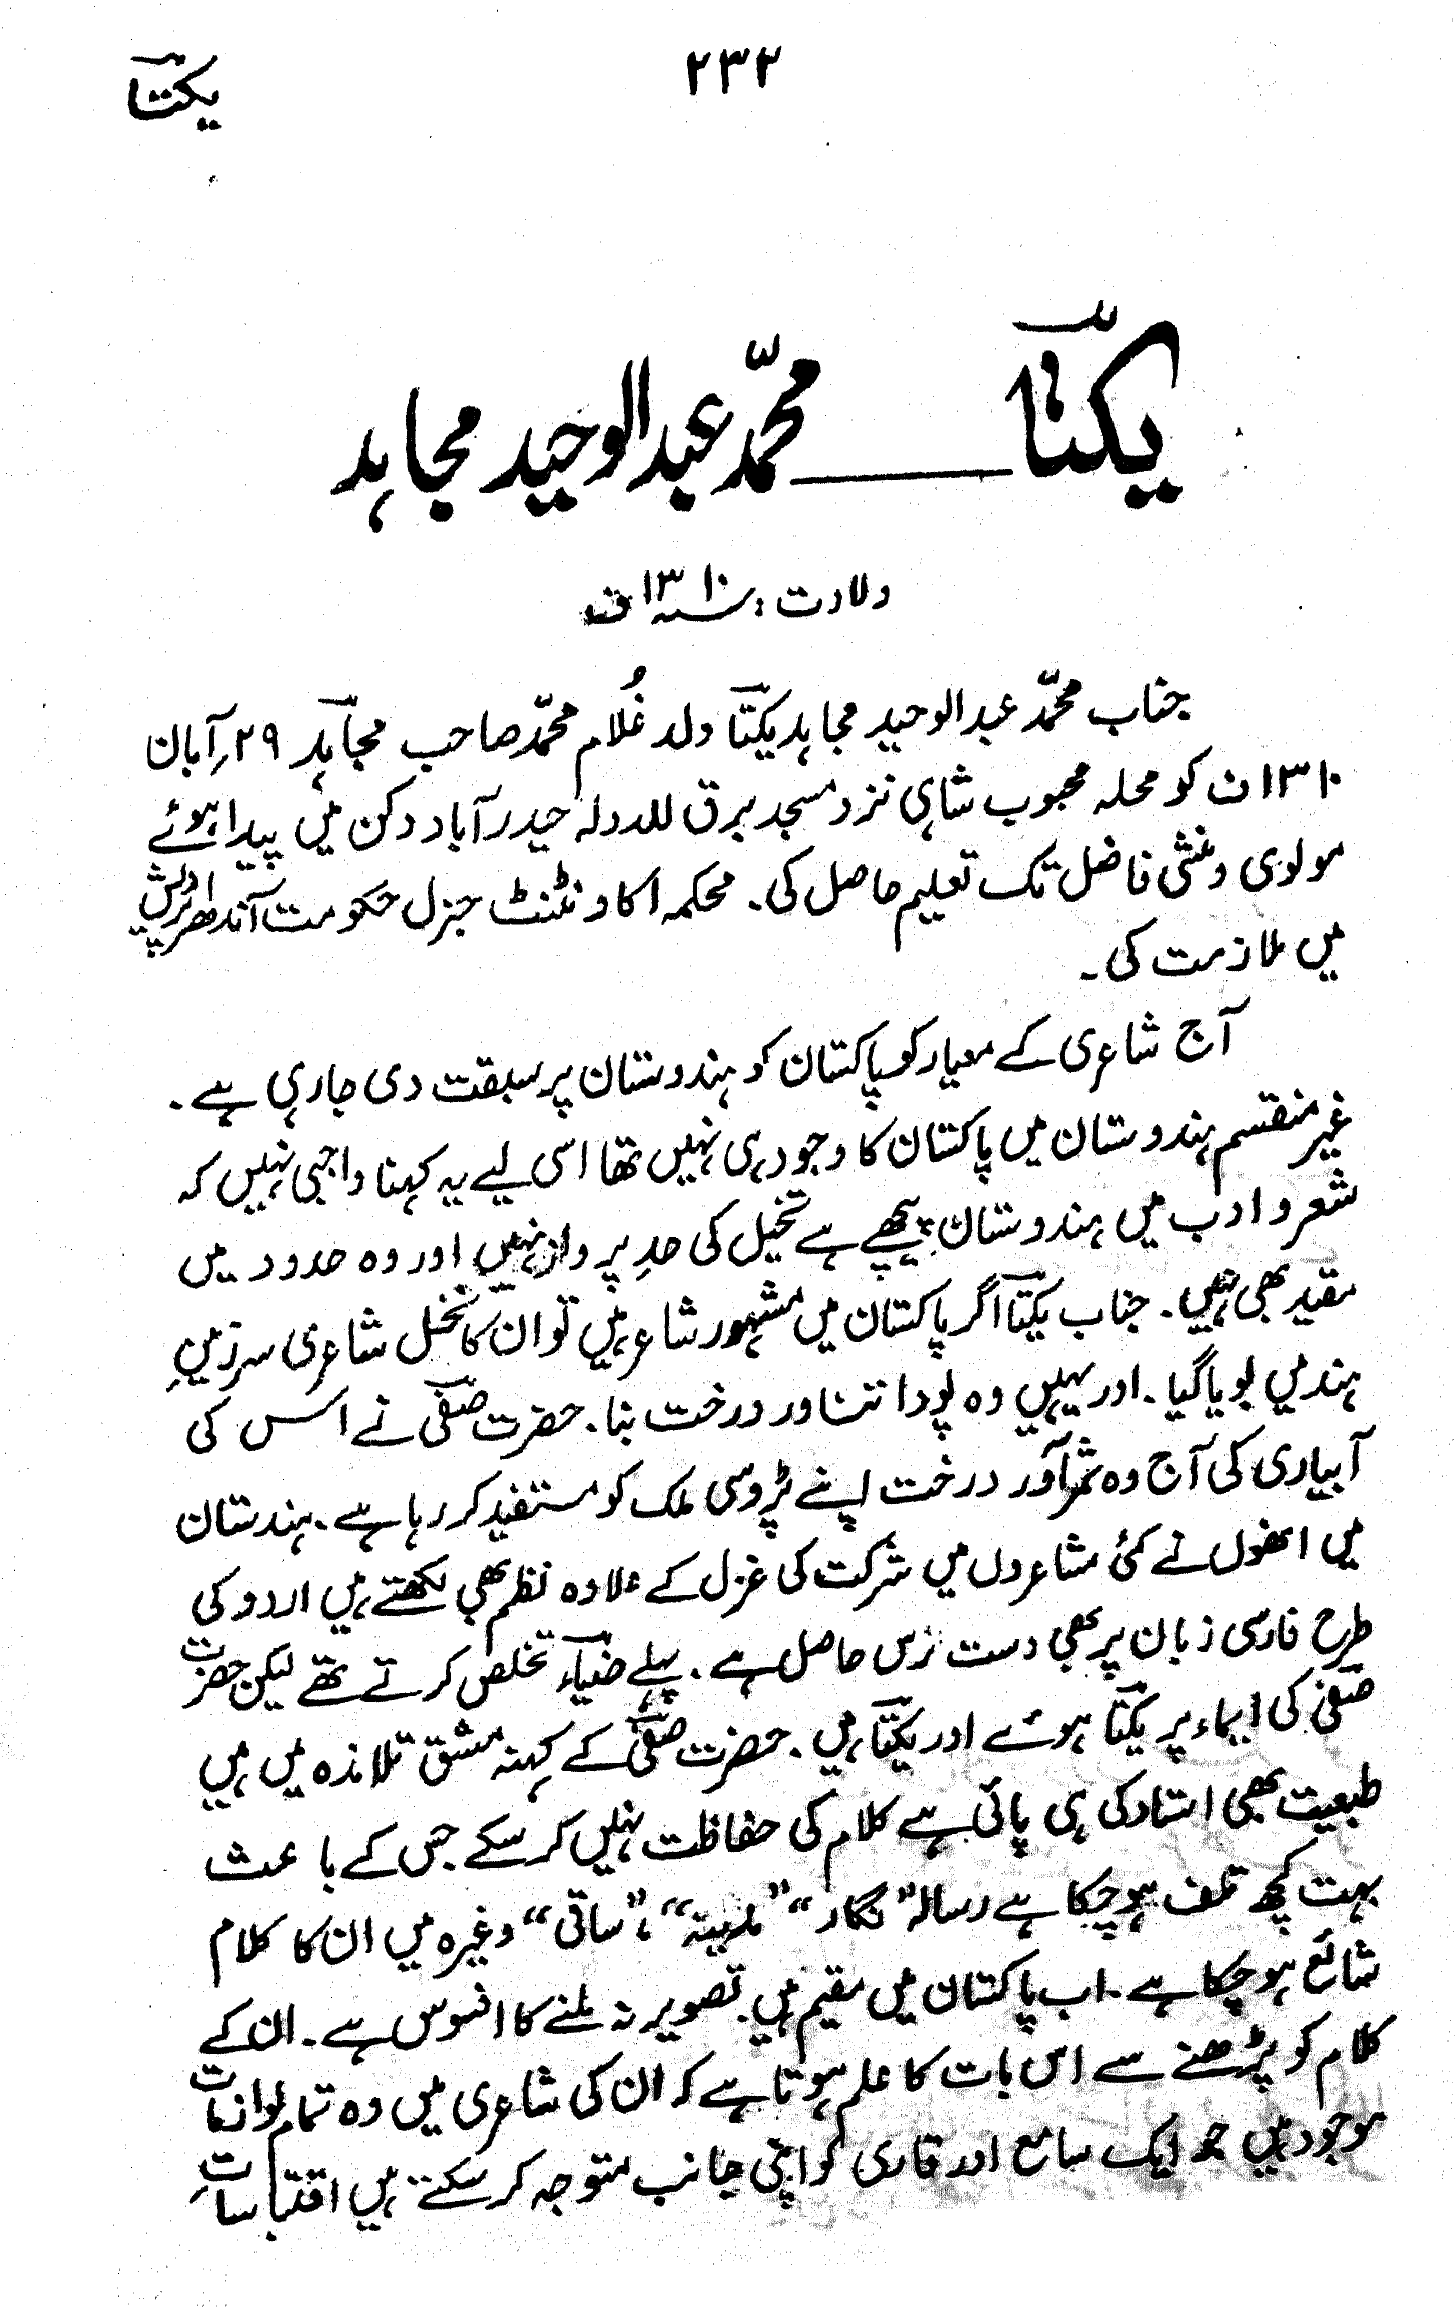 ۲۳۲
یکتا
یکتا ــــ محمّد عبدالوحید مجاہد
ولادت : ۱۳۱۰ ف
جناب محمّد عبدالوحید مجاہد یکتا ولد غُلام محمّد صاحب مجاہد ۲۹ آبان
۱۳۱۰ ف کو محلہ محبوب شاہی نزد مسجد برق للدولہ حیدرآباد دکن میں پیدا ہوئے
مولوی و منشی فاضل تک تعلیم حاصل کی۔ محکمہ اکاونٹنٹ جنرل حکومت آندھرا پردیش
میں ملازمت کی۔
آج شاعری کے معیار کو پاکستان کو ہندوستان پر سبقت دی جارہی ہے۔
غیر منقسم ہندوستان میں پاکستان کا وجود ہی نہیں تھا اسی لیے یہ کہنا واجبی نہیں کہ
شعر و ادب میں ہندوستان پیچھے ہے تخیل کی حدِ پرواز نہیں اور وہ حدود میں
مقید بھی نہیں۔ جناب یکتا اگر پاکستان میں مشہور شاعر ہیں تو ان کا نخل شاعری سرزمینِ
ہند میں بویا گیا۔ اور یہیں وہ پودا تناور درخت بنا۔ حضرت صفی نے اس کی
آبیاری کی آج وہ ثمرآور درخت اپنے پڑوسی ملک کو مستفید کر رہا ہے۔ ہندستان
میں انھوں نے کئی مشاعروں میں شرکت کی غزل کے علاوہ نظم بھی لکھتے ہیں اردو کی
طرح فارسی زبان پر بھی دست رس حاصل ہے۔ پہلے ضیاء تخلص کرتے تھے لیکن حضرت
صفی کی ایماء پر یکتا ہوئے اور یکتا ہیں۔ حضرت صفی کے کہنہ مشق تلامذہ میں ہیں
طبعیت بھی استاد کی ہی پائی ہے کلام کی حفاظت نہیں کرسکے جس کے باعث
بہت کچھ تلف ہوچکا ہے رسالہ "نگار" "مدینہ"، "ساقی" وغیرہ میں ان کا کلام
شائع ہوچکا ہے۔ اب پاکستان میں مقیم ہیں۔ تصویر نہ ملنے کا افسوس ہے۔ ان کے
کلام کو پڑھنے سے اس بات کا علم ہوتا ہے کہ ان کی شاعری میں وہ تمام لوازمات
موجود ہیں جو ایک سامع اور قاری کو اپنی جانب متوجہ کرسکتے ہیں اقتباسات